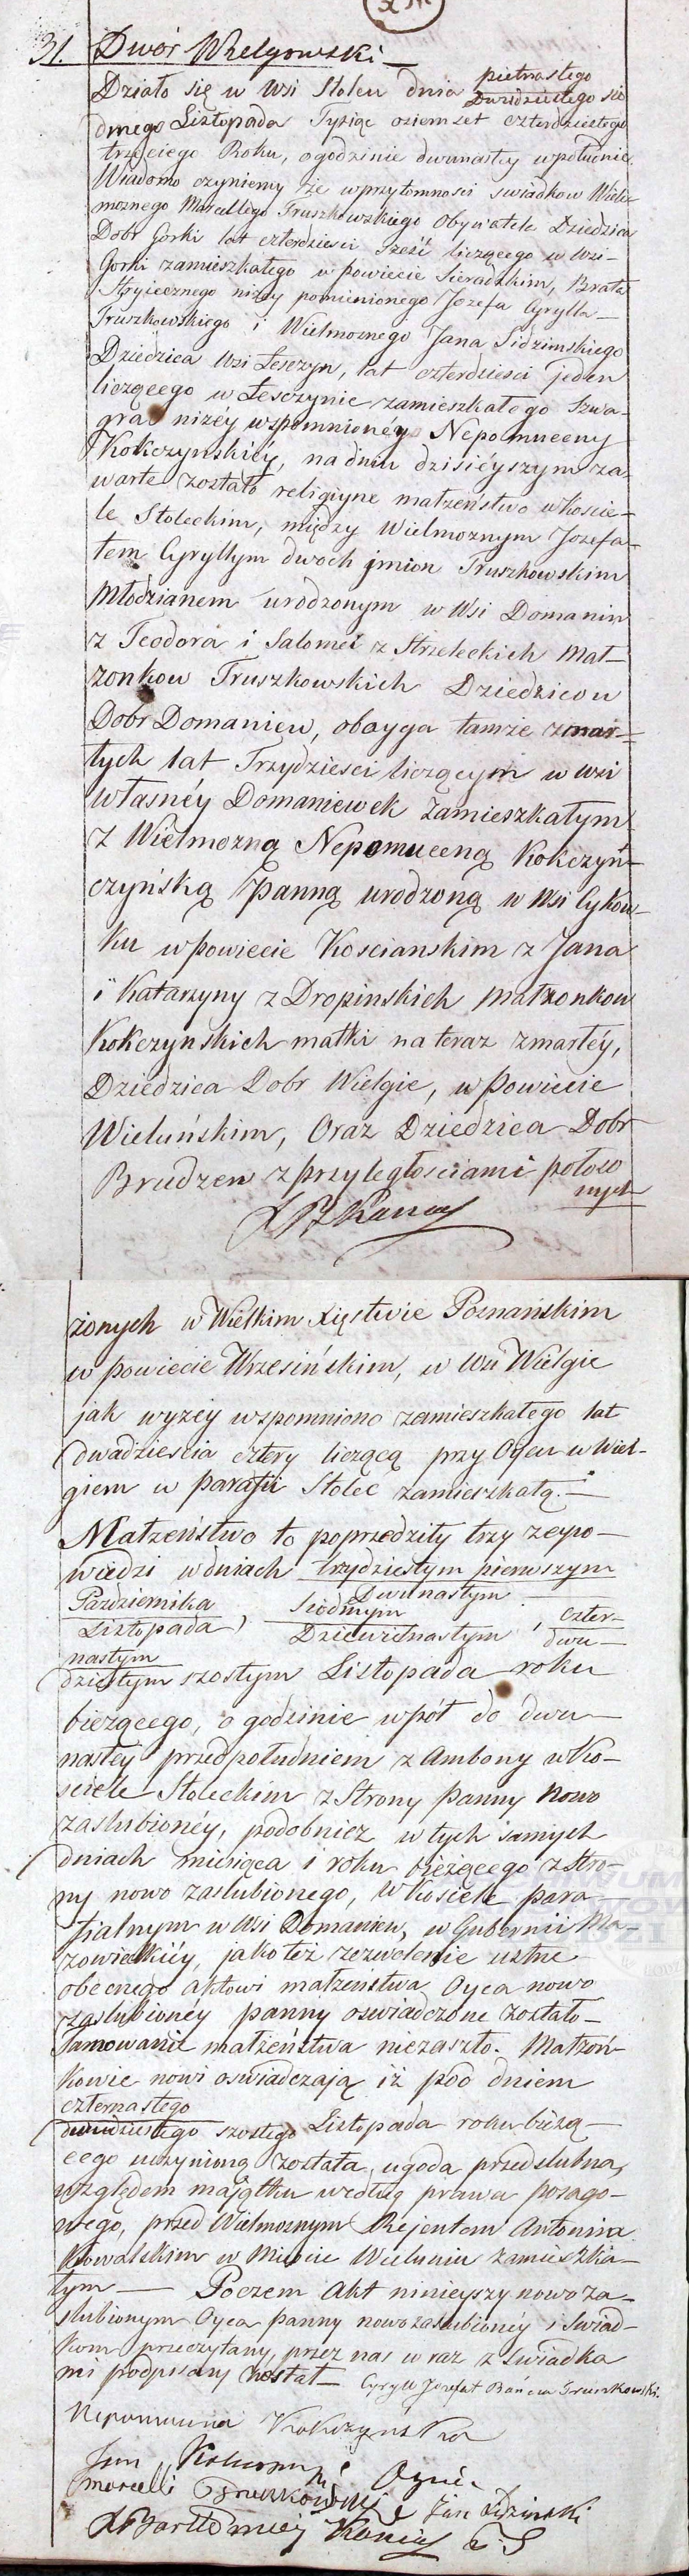 31. Dwór Wielgowski
Działo się w Wsi Stolcu dnia piętnastego
Dwudziestego sió
dmego Listopada Tysiąc ośiemset czterdziestego
trzeciego Roku, o godzinie dwunastey wpołudnie.
Wiadomo czyniemy że wprzytomnosci swiadkow Wiel
moznego Marcellego Truszkowskiego Obywatela Dziedzica
Dobr Gorki lat czterdziesci sześć liczącego w Wsi-
Gorki zamieszkałego w powiecie Sieradzkim, Brata
Stryiecznego niżey pomienionego Jozefa Cyrylla-
Truszkowskiego i Wielmoznego Jana Sidzimskiego
Dziedzica Wsi Lesczyn, lat czterdziesci jeden
liczącego w Lesczynie zamieszkałego Szwa-
gra niżéy wspomnionéy Nepomuceny
Kokczynskiéy, na dniu dzisiéyszym za-
warte zostało religiyne małzeństwo w koście-
le Stoleckim, między Wielmoznym Jozefa-
tem Cyryllym dwoch jmion Truszkowskim
Młodzianem urodzonym w Wsi Domanin
z Teodora i Salomei z Strzeleckich Mał-
zonkow Truszkowskich Dziedzicow
Dobr Domaniew, obayga tamże zmar-
łych lat Trzydziesci liczącym w wsi
własnéy Domaniewek zamieszkałym
z Wielmozną Nepomuceną Kokczyń-
czyńską Panną urodzoną w Wsi Cykow-
ku w powiecie Koscianskim z Jana
i Katarzyny z Dropinskich małzonkow
Kokczynskich matki na teraz zmarłéy,
Dziedzica Dobr Wielgie, w Powiecie
Wieluńskim, Oraz Dziedzica Dobr
Brudzew z przyległosciami połozo
nych
żonych w Wielkim Xięstwie Poznańskim
w powiecie Wrzesińskim, w Wsi Wielgie
jak wyzéy wspomniono zamieszkałego lat
dwadziescia cztery liczącą przy Oycu w Wiel-
giem w parafii Stolec zamieszkałą.-
Małzeństwo to poprzedziły trzy zapo-
wiedzi w dniach trzydziestym pierwszym
Dwunastym
Pazdziernika siódmym czter-
Listopada, Dziewietnastym, dwu-
nastym
dziestym szostym Listopada roku
bieżącego, o godzinie wpół do dwu-
nastéy przed południem z Ambony w Ko-
sciele Stoleckim z Strony Panny Nowo
zaslubionéy, podobniez w tych samych
dniach miesiąca i roku bieżącego z stro-
ny nowo zaslubionego, w Kosciele para-
fialnym w Wsi Domaniew, w Gubernii Ma-
zowieckiéy, jako też zezwolenie ustne
obecnego aktowi małzenstwa Oyca nowo
zaslubionéy panny oswiadczone zostało-
Tamowanie małżeństwa niezaszło. Małżoń-
kowie nowi oswiadczają iż pod dniem
czternastego
dwudziestego szostego Listopada roku bieżą-
cego uczynioną została ugoda przedslubna,
względem majątku według prawa posago-
wego, przed Wielmoznym Rejentem Antonim
Kowalskim w Miescie Wieluniu zamieszka-
łym - Poczem Akt ninieyszy nowo za-
slubionym Oyca panny nowozaslubionéy i swiad-
kom przeczytany, przez nas w raz z swiadka
mi podpisany został- Cyryll Jozefat Bończa Truszkowski.
Nepomucena Kokczynska
Jan Kokczynski Oyciec
Marcelli Truszkowski Jan Sidzimski
X Bartłomiey Kania